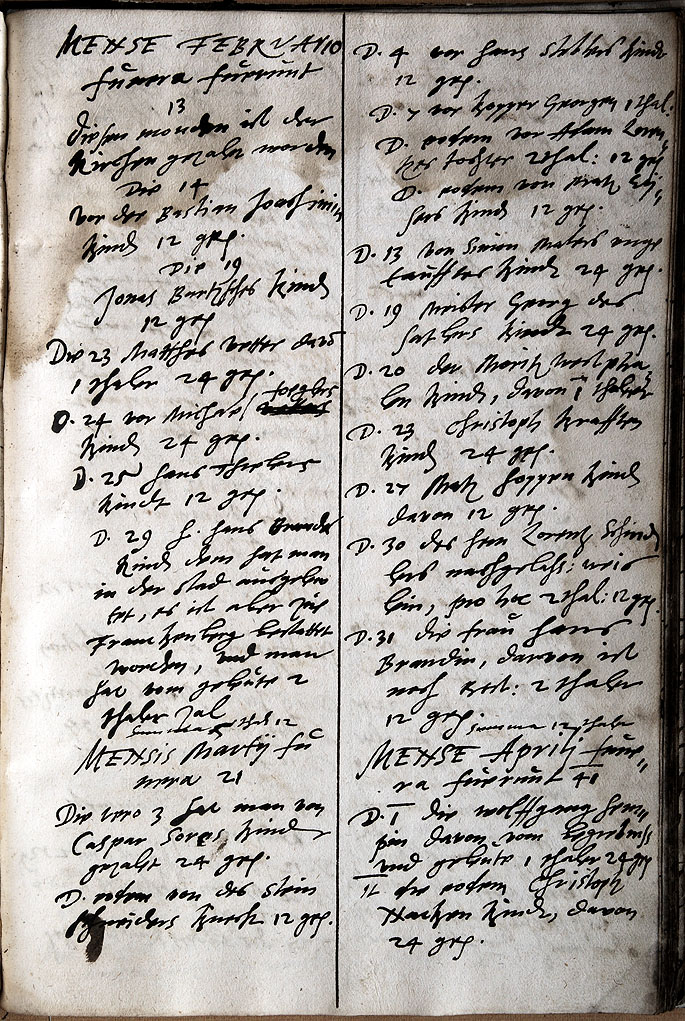 MENSE FEBRVARIO
funera fuerunt
13
diesen monden ist der
Kirchen gezalt worden
Die 14
vor der Bastian Joachimin
Kindt 12 grs.
Die 19
Jonas Kindt
12 grs
Die 23 Matthes vetter davon
1 thaler 24 grs.
D. 24 vor Michael
Kindt 24 grs.
D. 25 hans
Kindt 12 grs.
D. 29 h. hans
Kindt dem hat man
in der stad ausgeleu
tet, es ist aber zue
Franckenberg bestattet
worden, und man
hat vom geleute 2
thaler zal
Summa 12
MENSIS Martij fu
nera 21
Die vero 3 hat man von
Caspar Kindt
gezalt 24 grs.
D. eodem von des stein
schneiders Knecht 12 grs.
D. 4 vor hans Kindt
12 grs.
D. 7 vor Georgen 1 thal:
D. eodem vor Adam Loren
tzes tochter 2 thal: 12 grs
D. eodem von Matz
Kindt 12 grs.
D. 13 von Simon unge
taufftes Kindt 24 grs.
D. 19 Meister Georg des
satlers Kindt 24 grs.
D. 20 der Moritz westpha
len Kindt, davon 1 thaler
D. 23 Christoph Krafften
Kindt 24 grs.
D. 27 Matz Hoppen Kindt
davon 12 grs.
D. 30 des hern Lorentz Schind
lers nachgelass: weib
lein, pro hoc 2 thal: 12 grs
D. 31 die frau hans
Brandin, darvon ist
noch Rest: 2 thaler
12 grs Summa 12 thaler
MENSE Aprilj fune
ra fuerunt 41
D. 1 die wolffgang
davon vom begrebniss
und geleute 1 thaler 24 grs
It die eodem Christoph
Kindt, davon
24 grs.